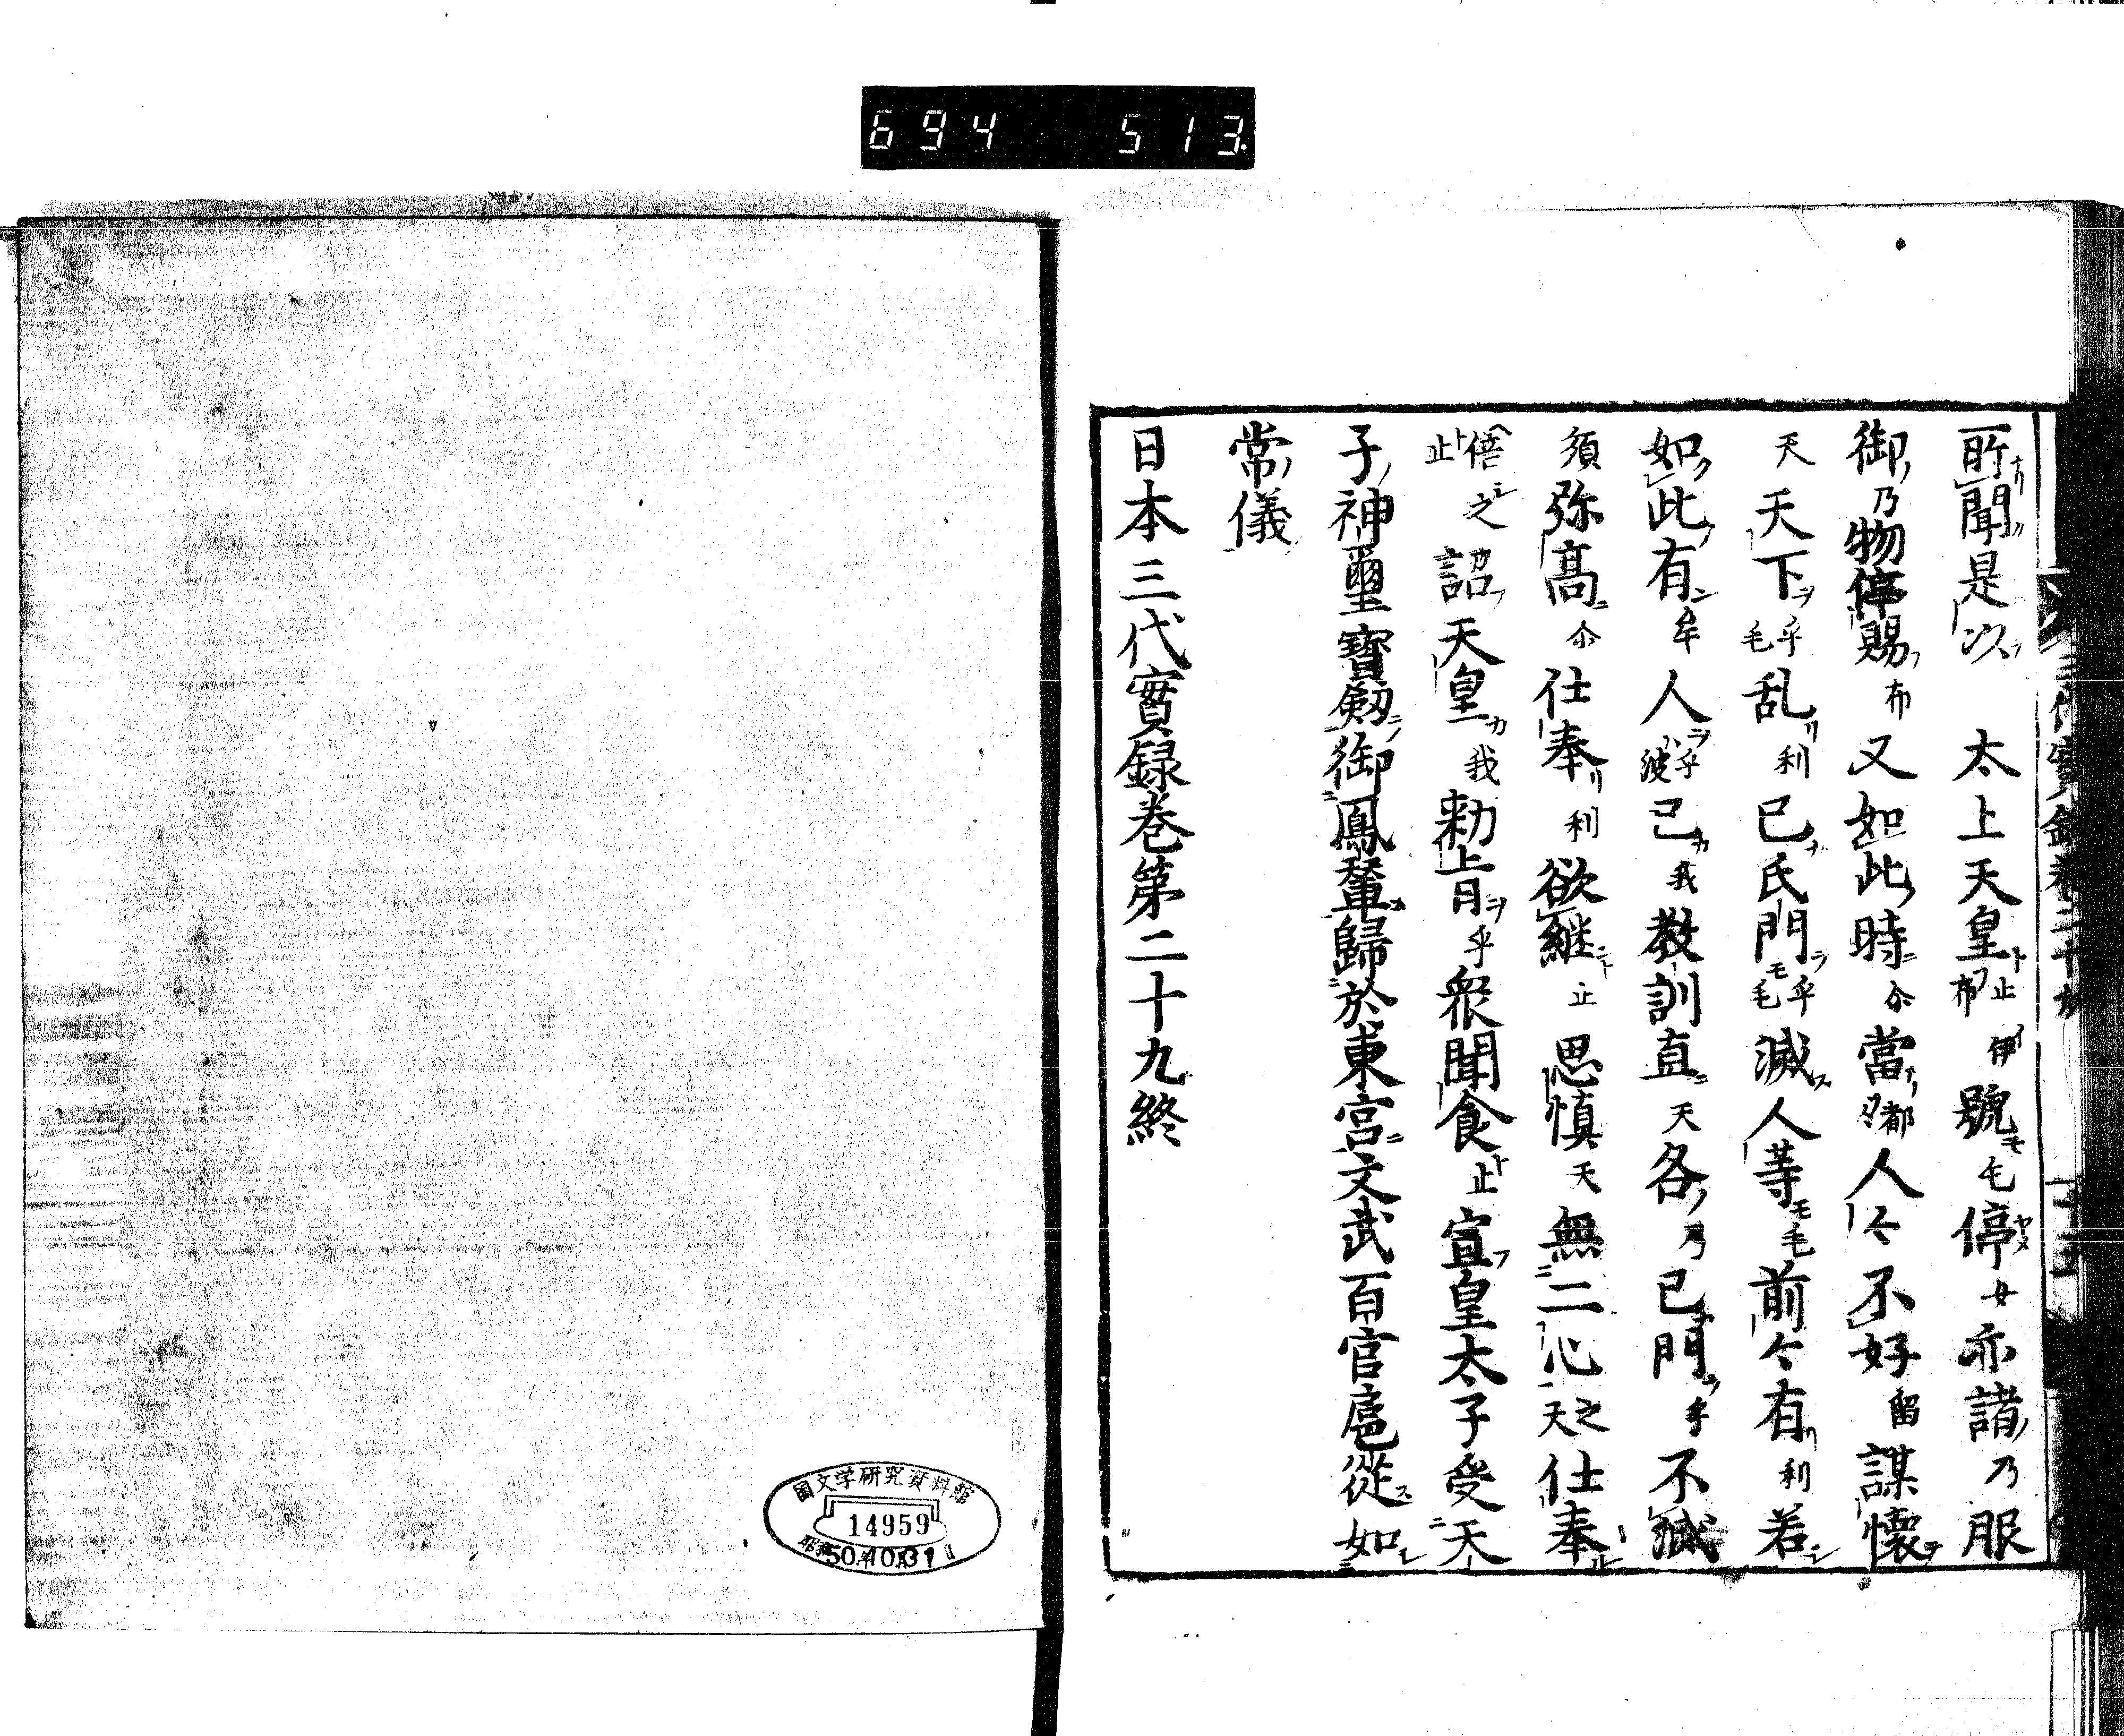 694 513
所聞是以 太上天皇止布伊號毛停女亦諸乃服
御乃物停賜布又如此時尓當都人々不好留謀懷
天天下乎毛乱利己氏門乎毛滅人等毛前々有利若
如此有牟人乎波己我教訓直天各乃己門乎不滅
須弥高尓仕奉利欲継止思慎天無二心之天仕奉
倍之止詔天皇我勅旨乎衆聞食止宣皇太子受天
子神璽寳劔御鳳輦歸於東宮文武百官扈從如
常儀
日本三代實録巻第二十九終
国文学研究資料館
14959
50.10.31